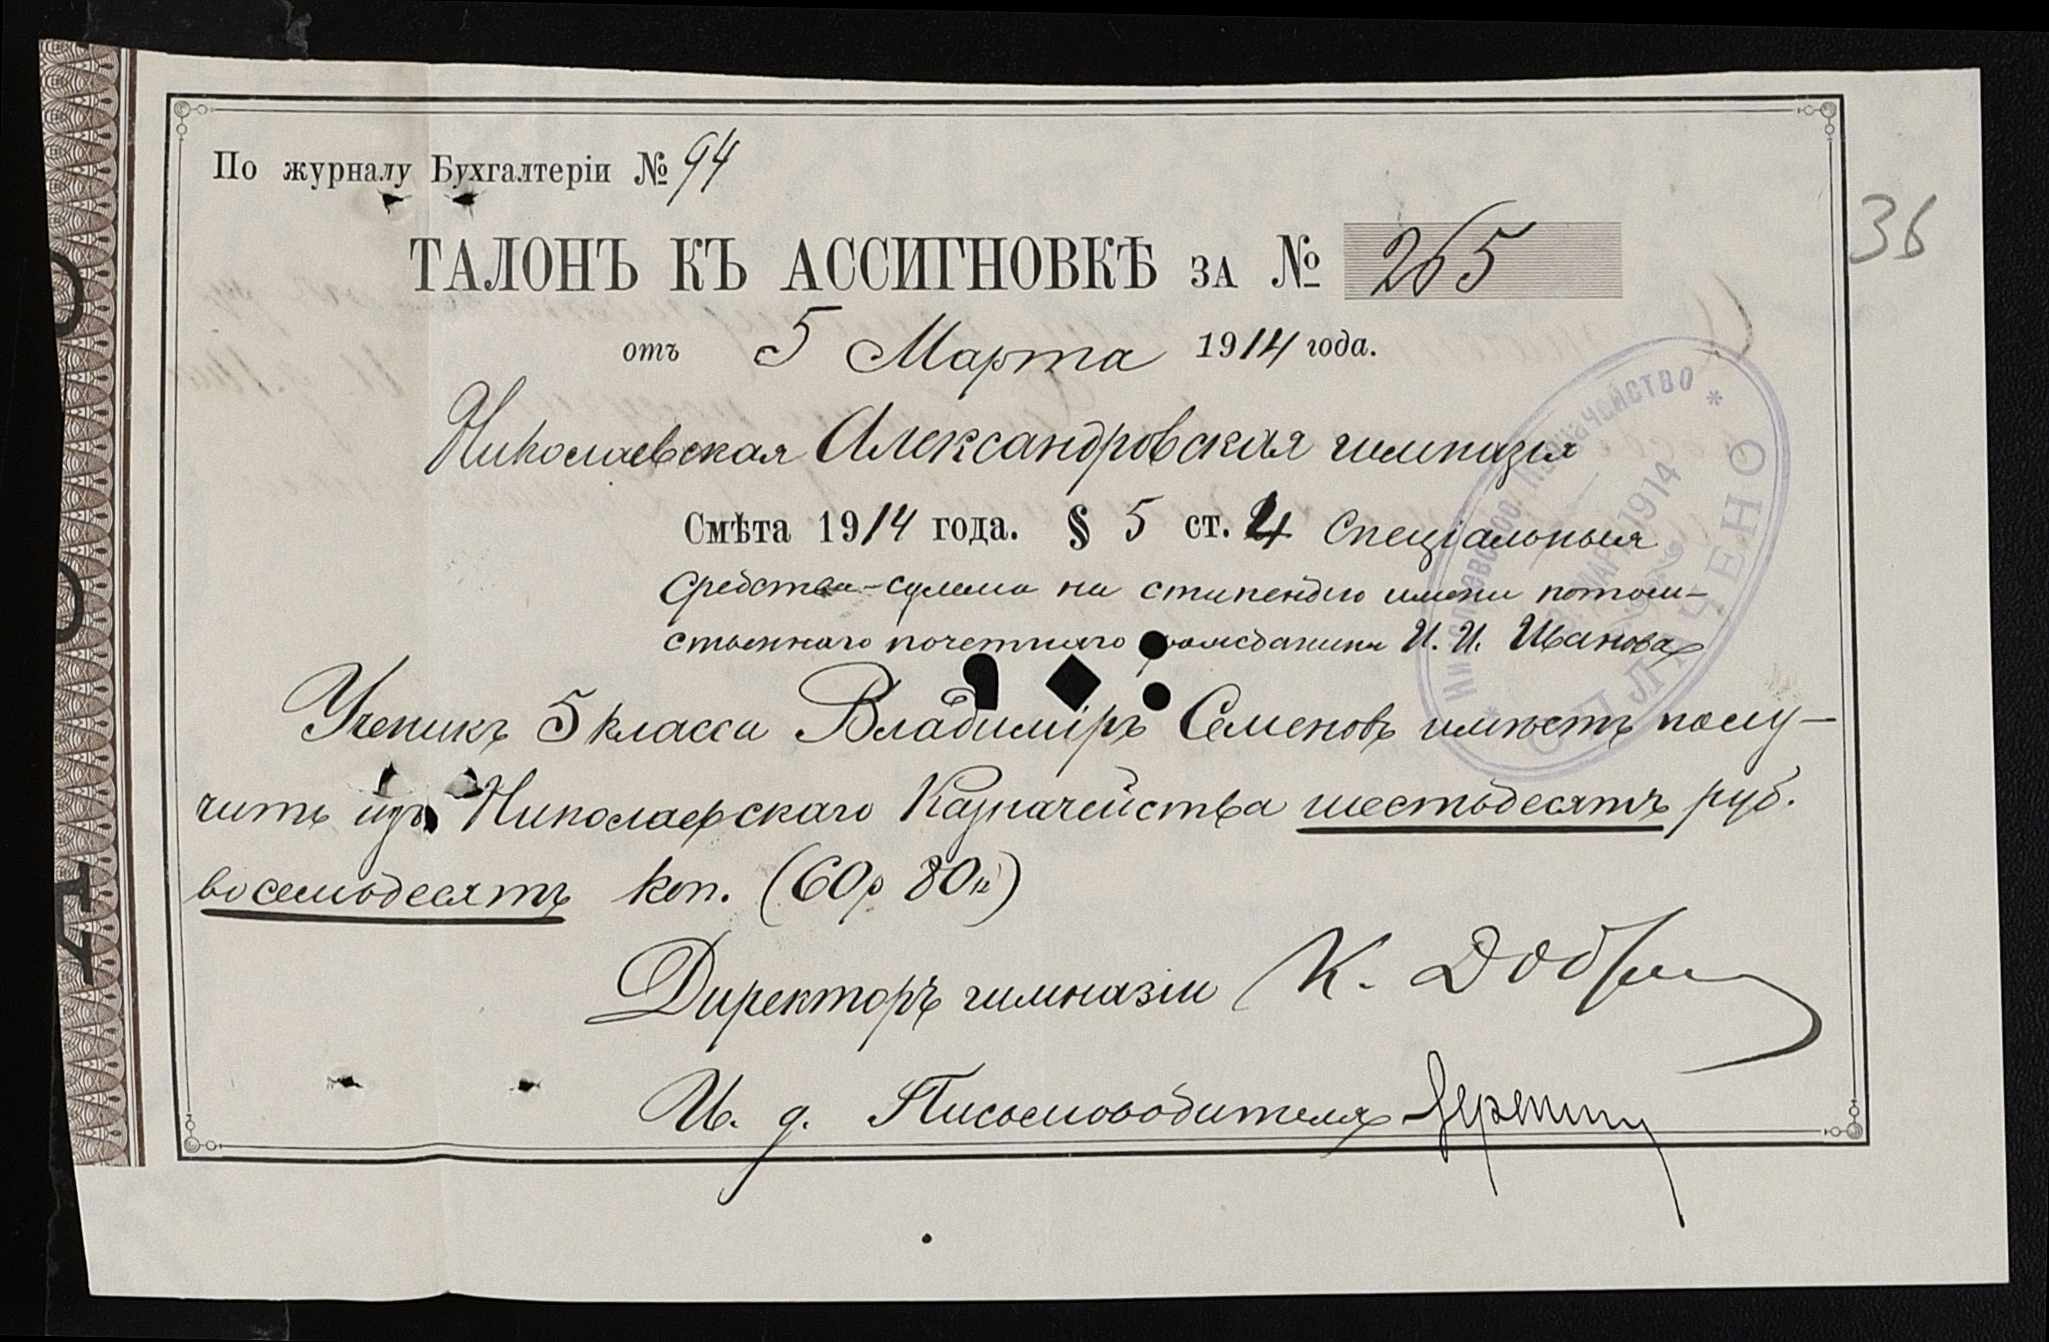 По журналу Бухгалтеріи № 94
36
ТАЛОНЪ КЪ АССИГНОВКѢ ЗА № 265
отъ 5 Марта 1914 года.
Николаевская Александровская гимназія
Смѣта 1914 года. § 5 ст. 4 Спеціальныя
средства - сумма на стипендію имени потом-
ственнаго почетнаго гражданина И. И. Иванова
Ученикъ 5 класса Владиміръ Семеновъ имѣетъ полу-
чить изъ Николаевскаго Казначейства шестьдесятъ руб.
восемьдесятъ коп. (60 р 80 к)
Директоръ гимназіи К.
И. д. Письмоводителя
Николаевское Казначейство
МАР. 1914
ОПЛАЧЕНО